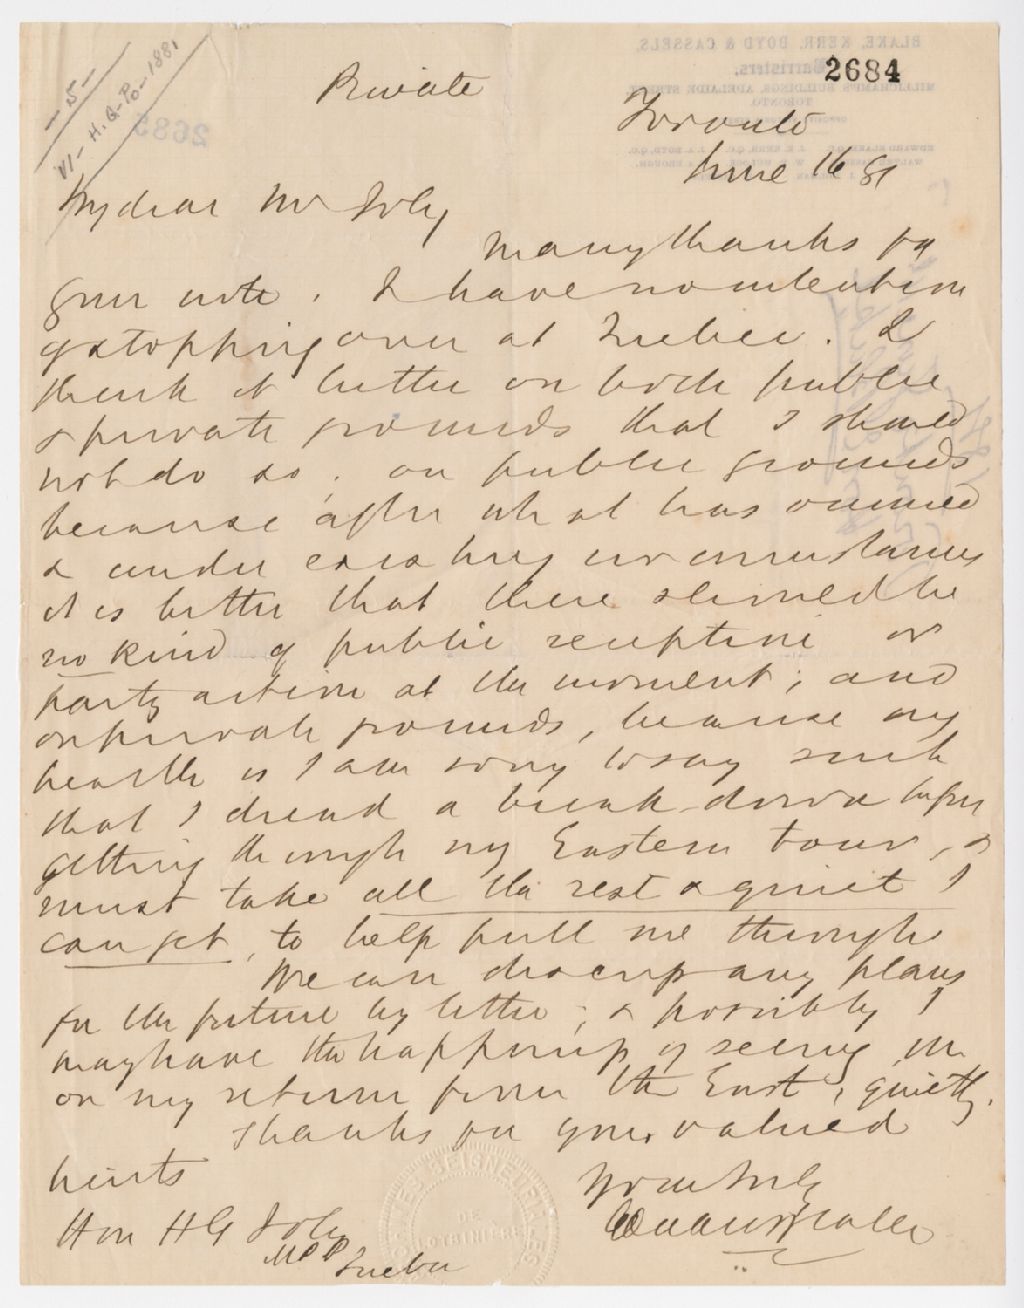 - 5 -
VI - H. G. - Po - 1881
2684
Private
Toronto
June 16 81
My dear Mr Joly
Many thanks for
your note. I have no intention
of stopping over at Quebec. I
think it better on both public
& private grounds that I should
not do so; on public grounds
because after what has occurred
& under existing circumstances
it is better that there should be
no kind of public reception or
party action at the moment; and
on private grounds, because my
health is I am sorry to say such
that I dread a break-down before
getting through my Eastern tour, &
must take all the rest & quiet I
can get, to help pull me through
We can discuss any plans
for the future by letter; & possibly I
may have the happiness of seeing you
on my return from the East, quietly.
Thanks for your valued
hints
Yours truly
Edward Blake
Hon H G Joly
MPP
Quebec
SEIGNEURIALES
DE
LOTBINIERE